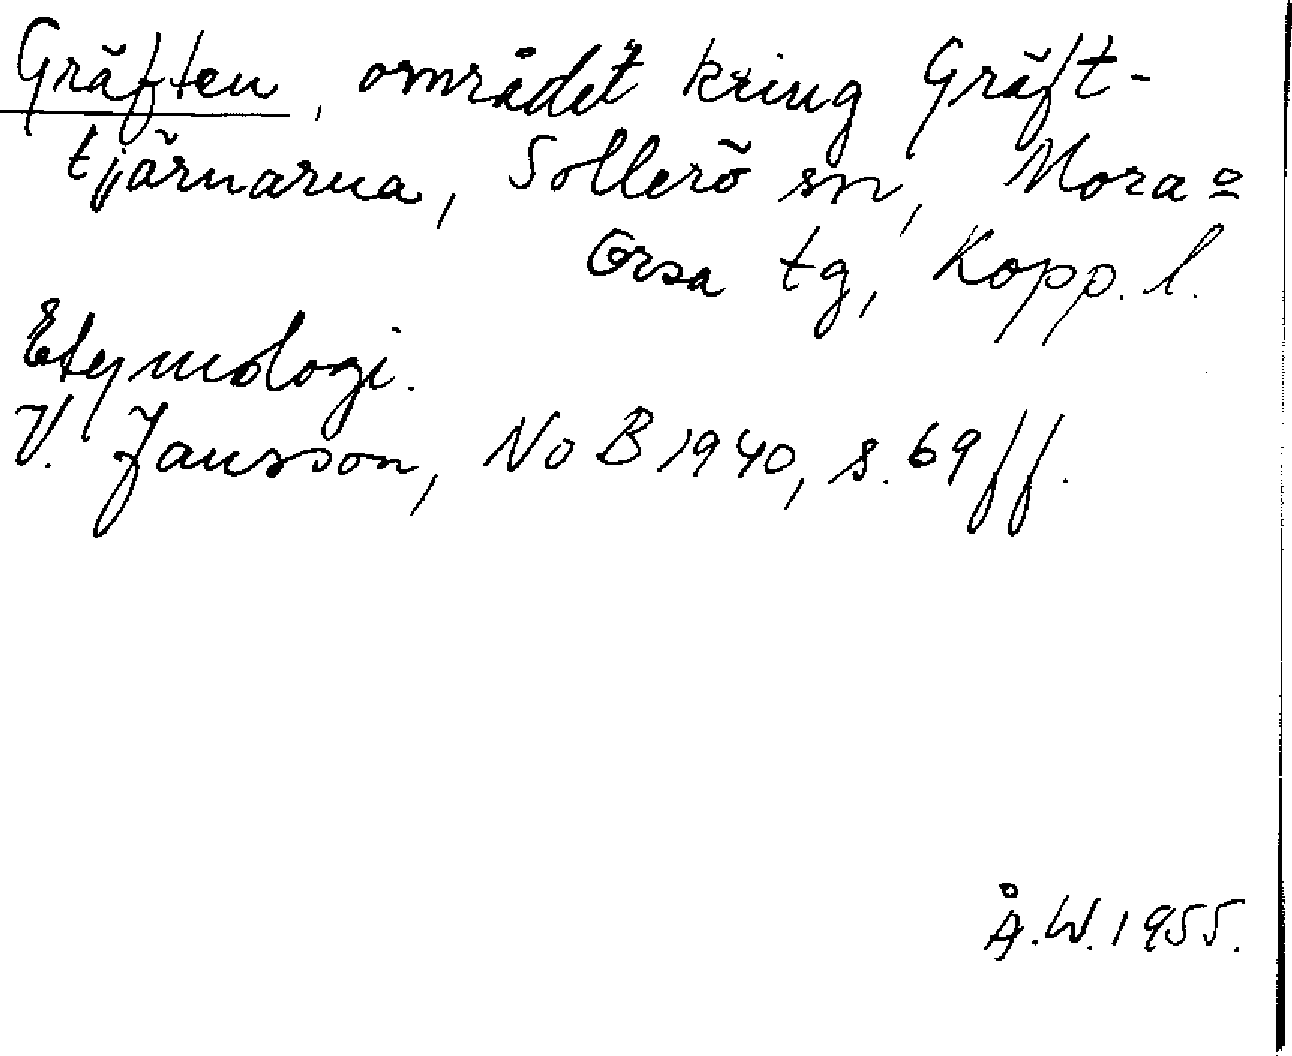 Gräften, området kring Gräft-
tjärnarna, Sollerö sn, Mora o
Orsa tg, Kopp. l.
Etymologi.
V. Jansson, NoB 1940, s. 69 ff.
Å.W. 1955.